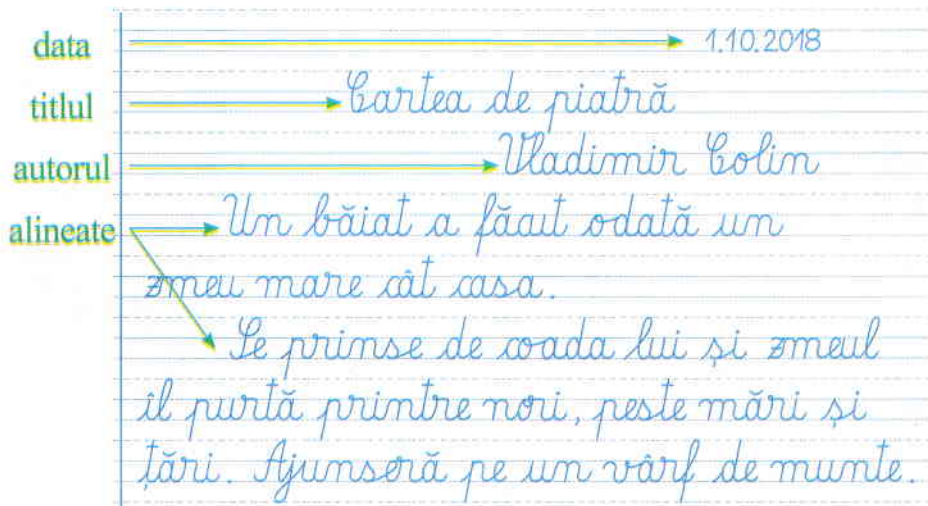 data 1.10.2018
titlul Cartea de piatră
autorul Vladimir Colin
alineate Un băiat a făcut odată un
zmeu mare cât casa.
Se prinse de coada lui și zmeul
îl purtă printre nori, peste mări și
țări. Ajunseră pe un vârf de munte.